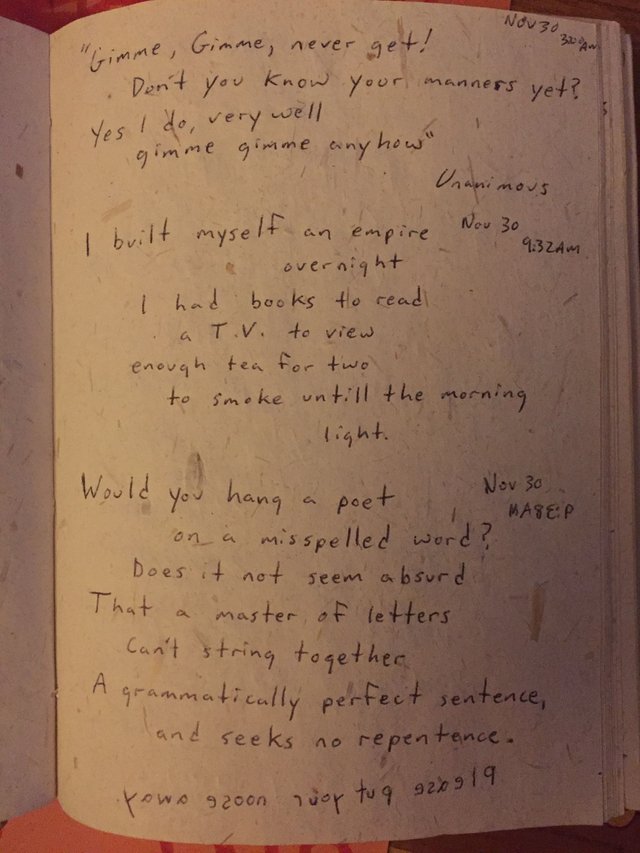 Nov 30
3:00 Am
"Gimme, Gimme, never get!
Don't you know your manners yet?
Yes I do, very well
gimme gimme anyhow"
Unanimous
Nov 30
9:32AM
I built myself an empire
overnight
I had books to read
a T.V. to view
enough tea for two
to smoke untill the morning
light.
Nov 30
9:38AM
Would you hang a poet
on a misspelled word?
Does it not seem absurd
That a master of letters
Can't string together
A grammatically perfect sentence,
and seeks no repentence.
please put your noose away.